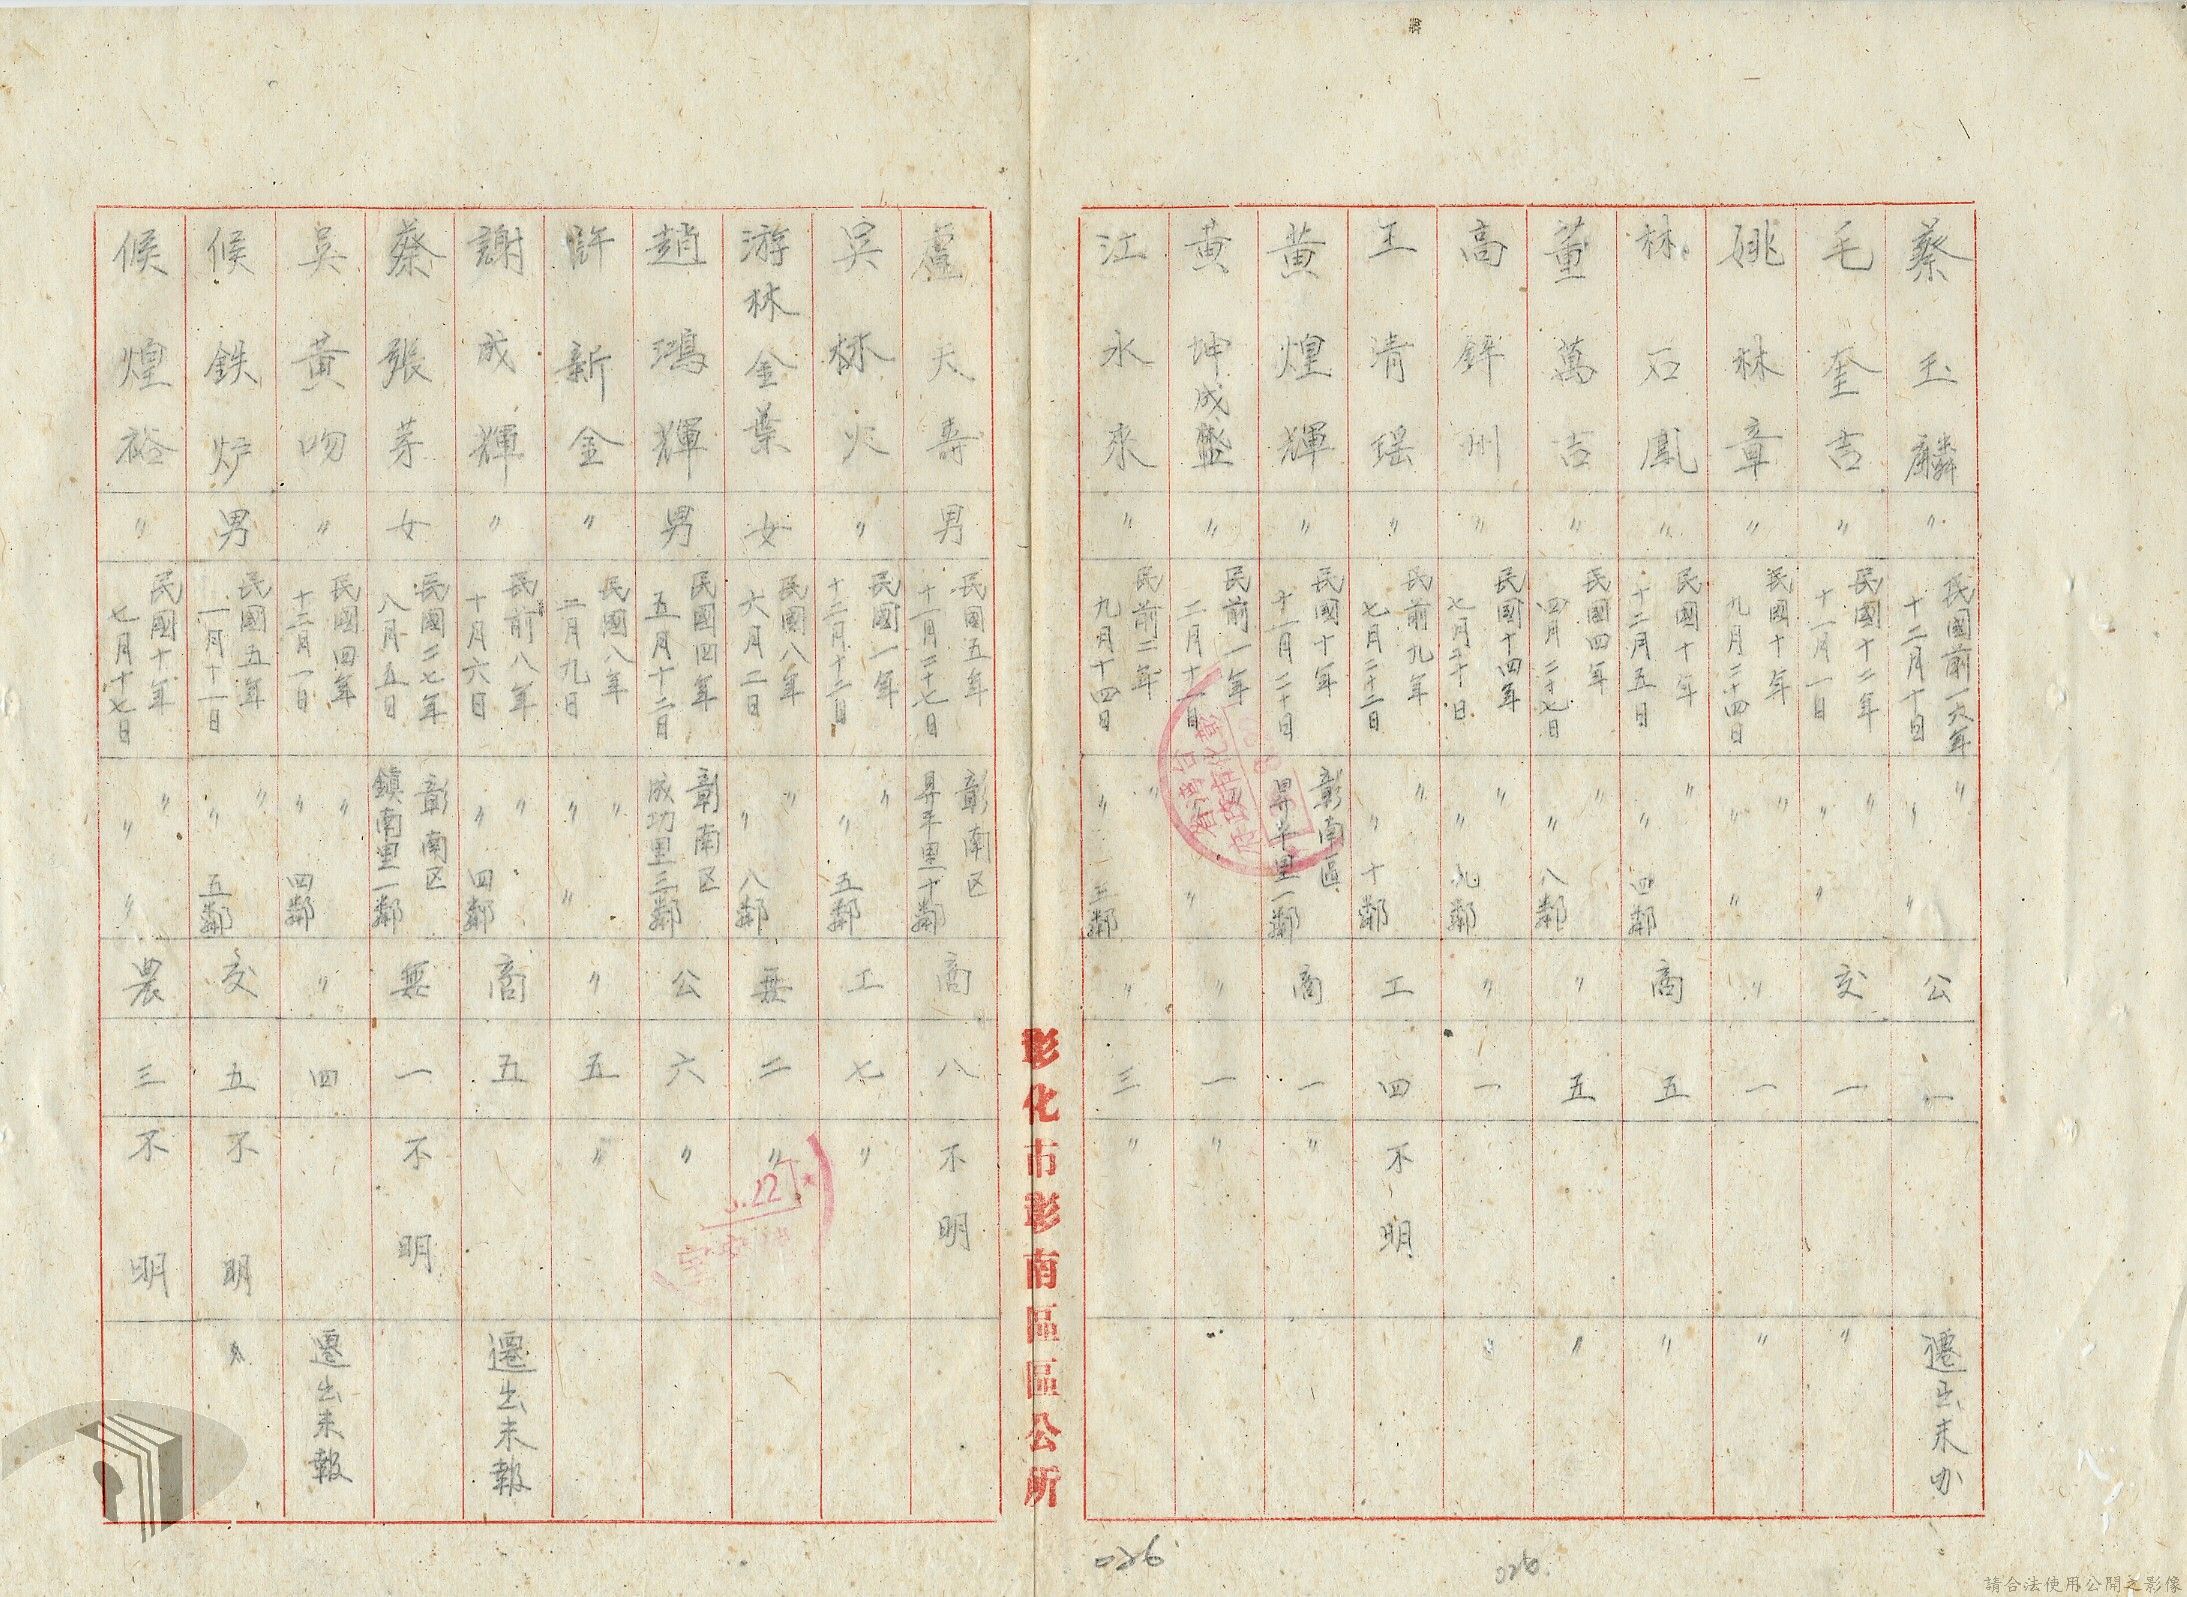 蔡玉麟 〃 民國前一六年十二月十日 〃 〃 〃 公 一 遷出未办
毛奎吉 〃 民國十二年十一月一日 〃 〃 〃 交 一 〃
姚林章 〃 民國十年九月二十四日 〃 〃 〃 〃 一 〃
林石鳳 〃 民國十年十二月五日 〃 〃 四鄰 商 五 〃
董萬吉 〃 民國四年四月二十七日 〃 〃 八鄰 〃 五 〃
高鉾州 〃 民國十四年七月二十日 〃 〃 九鄰 〃 一 〃
王清瑶 〃 民前九年七月二十二日 〃 〃 十鄰 工 四 不明
黄煌輝 〃 民國十年十一月二十日 彰南區昇平里一鄰 商 一 〃
黄坤成盛 〃 民前一年二月十一日 〃 〃 一 〃
江永來 〃 民前二年九月十四日 〃 〃 三鄰 〃 三 〃
彰化市彰南區區公所
盧天壽 男 民國五年十一月二十七日 彰南区昇平里十鄰 商 八 不明
吴林火 〃 民國一年十二月十二日 〃 〃 五鄰 工 七 〃
游林金葉 女 民國八年六月二日 〃 〃 八鄰 無 二 〃
趙鴻輝 男 民國四年五月十二日 彰南区成功里三鄰 公 六 〃
許新金 〃 民國八年二月九日 〃 〃 〃 〃 五 〃
謝成輝 〃 民前八年十月六日 〃 〃 四鄰 商 五 遷出未報
蔡張芽 女 民國二七年八月五日 彰南区鎮南里一鄰 無 一 不明
吳黄吻 〃 民國四年十二月一日 〃 〃 四鄰 〃 四 遷出未報
候鉄炉 男 民國五年一月十一日 〃 〃 五鄰 交 五 不明
候煌裕 〃 民國十年七月十七日 〃 〃 〃 農 三 不明
026
026
請合法使用公開之影像